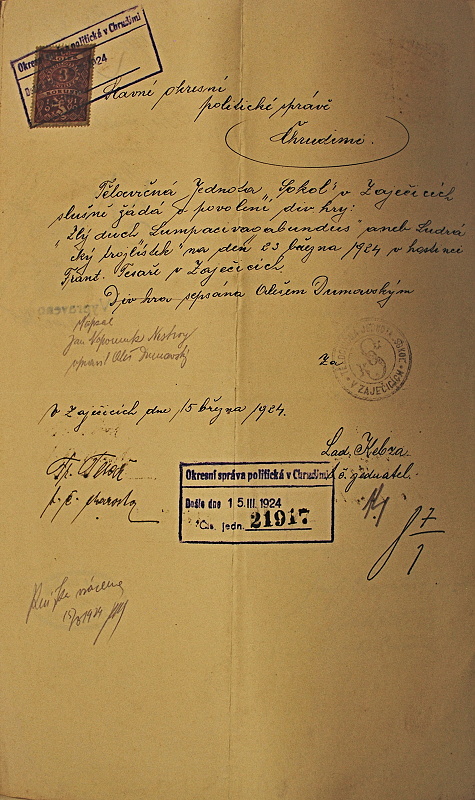 Okresní správa politická v Chrudimi
1924
3
Slavné okresní
politické správě
Chrudimi.
Tělocvičná Jednota „Sokol" v Zaječicích
slušně žádá o povolení div. hry:
„Zlý duch Lumpacivagabundus" aneb Ludrá
cký trojlístek" na den 23 března 1924 v hostinci
Frant. Tesaře v Zaječicích.
Div. hra sepsána Olešem Dumovským
Napsal
Jan Nepomuk Nestroy
upravil Oleš Dumovský
Za
V ZAJEČICÍCH
V Zaječicích dne 15 března 1924.
Lad. Kebza
t. č. jednatel.
Fr. Tesař
t. č. starosta
Okresní správa politická v Chrudimi
Došlo dne 15. III. 1924
Čís. jedn. 21917
7
1